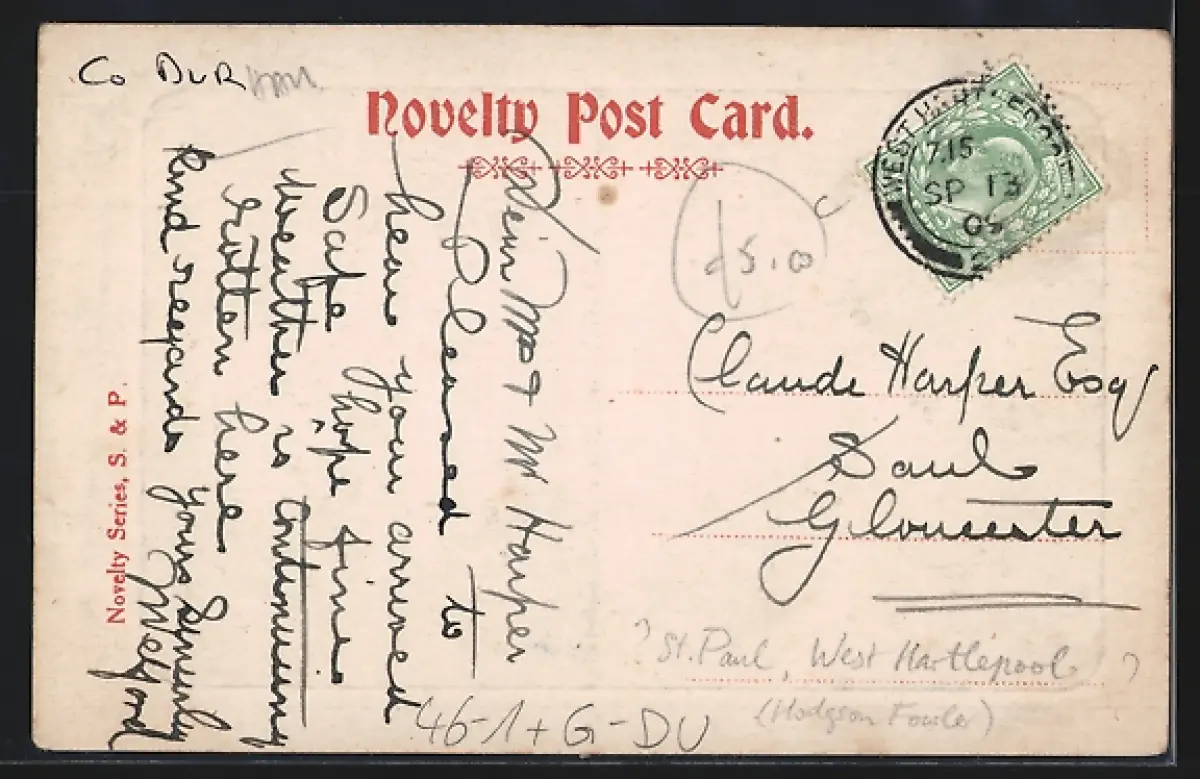 Co DURHAM.
Novelty Post Card.
WEST HARTLEPOOL
7.15
SP 13
£5.00
Mrs & Mr Harper
Pleased to
hear you arrived
Safe hope fine
Weather is continueing
rotten here
Kind regards yours Sincerely
Welford
Claude Harper Esq
Saul
Gloucester
Novelty Series, S. & P.
? St. Paul, West Hartlepool ?
(Hodgson Fowler)
46-1+G-DU